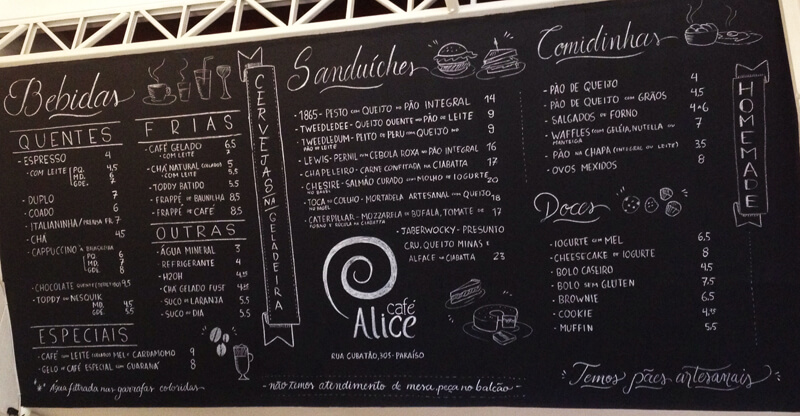 Bebidas
QUENTES
- ESPRESSO 4
- COM LEITE PQ. 4,5
MD. 6
GDE. 7
- DUPLO 7
- COADO 6
- ITALIANINHA/PRENSA FR. 7
- CHÁ 4,5
- CAPPUCCINO À BRASILEIRA
PQ. 6
MD. 7
GDE. 8
- CHOCOLATE QUENTE 9
- TODDY OU NESQUIK
MD. 4,5
GDE. 5,5
ESPECIAIS
- CAFÉ COM LEITE MEL E CARDAMOMO 9
- GELO DE CAFÉ ESPECIAL COM GUARANÁ 8
Água filtrada nas garrafas coloridas
FRIAS
- CAFÉ GELADO 6,5
COM LEITE 7
- CHÁ NATURAL GELADO 5
COM LEITE 5,5
- TODDY BATIDO 5,5
- FRAPPÉ DE BAUNILHA 8,5
- FRAPPÉ DE CAFÉ 8,5
OUTRAS
- ÁGUA MINERAL 3
- REFRIGERANTE 4
- H2OH 4,25
- CHÁ GELADO FUST 4,25
- SUCO DE LARANJA 5,5
- SUCO DO DIA 5,5
CERVEJAS NA GELADEIRA
Sanduíches
- 1865 - PESTO COM QUEIJO NO PÃO INTEGRAL 14
- TWEEDLEDEE - QUEIJO QUENTE NO PÃO DE LEITE 9
- TWEEDLEDUM - PEITO DE PERU COM QUEIJO NO 9
PÃO DE LEITE
- LEWIS - PERNIL COM CEBOLA ROXA NO PÃO INTEGRAL 16
- CHAPELEIRO - CARNE CONFITADA NA CIABATTA 17
- CHESIRE - SALMÃO CURADO COM MOLHO DE IOGURTE 20
NO BAGEL
- TOCA DO COELHO - MORTADELA ARTESANAL COM QUEIJO 18
NO BAGEL
- CATERPILLAR - MOZZARELA DE BÚFALA, TOMATE DE 17
FORNO E RÚCULA NA CIABATTA
- JABERWOCKY - PRESUNTO
CRU, QUEIJO MINAS E
ALFACE NA CIABATTA 23
café
Alice
RUA CUBATÃO, 305 - PARAÍSO
- não temos atendimento de mesa, peça no balcão -
Comidinhas
- PÃO DE QUEIJO 4
- PÃO DE QUEIJO COM GRÃOS 4,5
- SALGADOS DE FORNO 4 - 6
- WAFFLES COM GELÉIA, NUTELLA OU 7
MANTEIGA
- PÃO NA CHAPA (INTEGRAL OU LEITE) 3,5
- OVOS MEXIDOS 8
HOMEMADE
Doces
- IOGURTE COM MEL 6,5
- CHEESECAKE DE IOGURTE 8
- BOLO CASEIRO 4,5
- BOLO SEM GLUTEN 7,5
- BROWNIE 6,5
- COOKIE 4,25
- MUFFIN 5,5
Temos pães artesanais